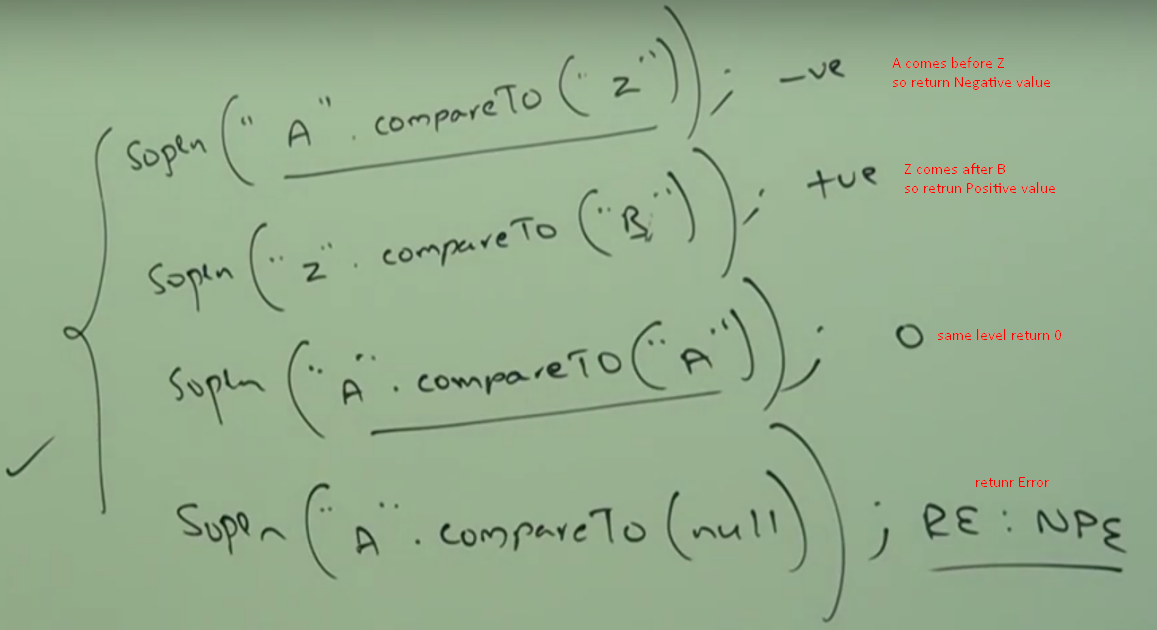 Sopln ("A".compareTo("Z")); -ve
A comes before Z
so return Negative value
Sopln ("Z".compareTo("B")); +ve
Z comes after B
so retrun Positive value
Sopln ("A".compareTo("A")); 0
same level return 0
Sopln ("A".compareTo(null)); RE: NPE
retunr Error